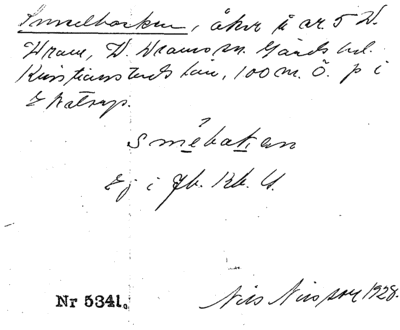 Smedbacken, åker å nr. 5 V.
Vram, V. Vrams sn. Gärds hd.
Kristianstads län, 100 m. Ö. p i
smèbakan
Ej i Jb. Kb. U.
Nr 5341.
Nils Nilsson 1928.